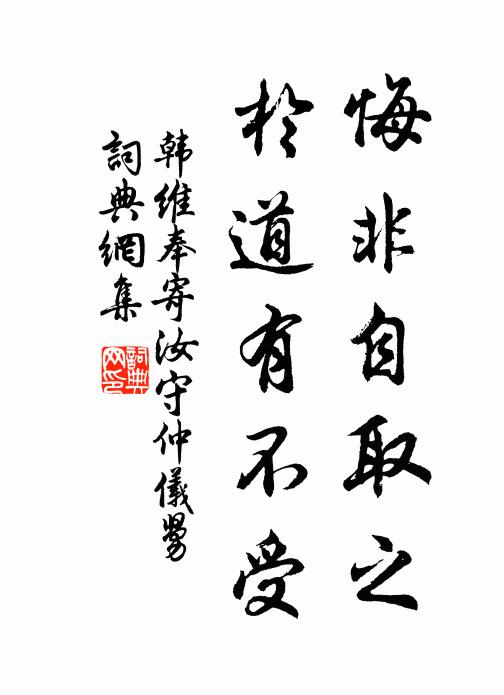 悔非自取之
於道有不受
韩维奉寄汝守仲儀舅
詞典網集
詞典网印